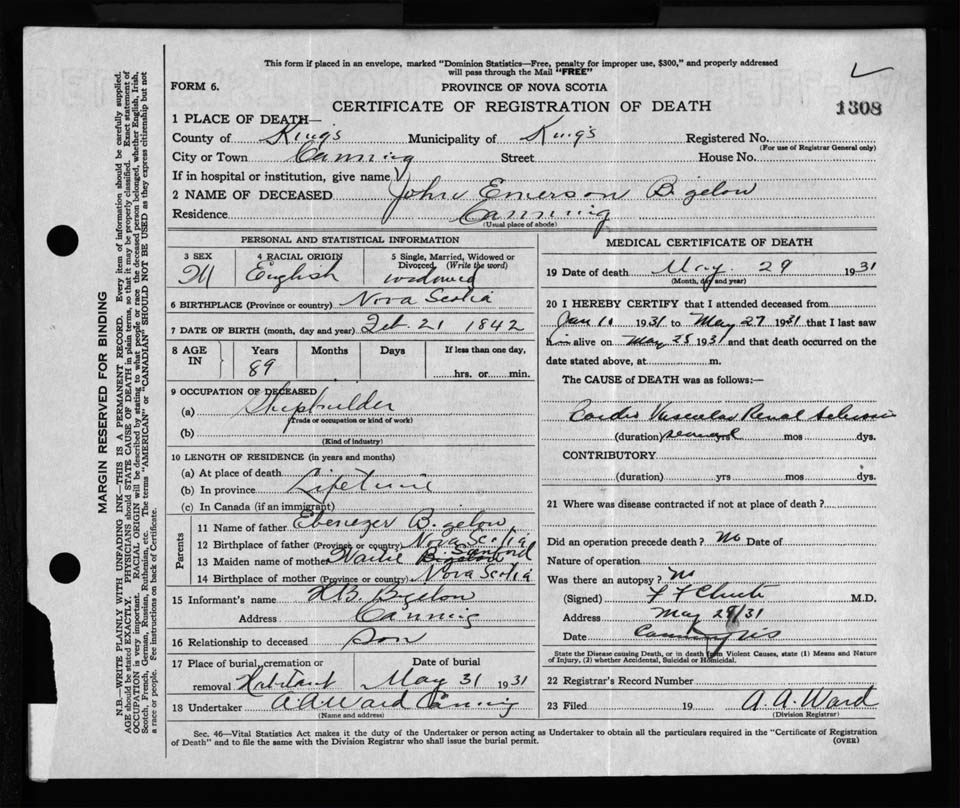 This form if placed in an envelope, marked "Dominion Statistics—Free, penalty for improper use, $300," and properly addressed
will pass through the Mail "FREE"
FORM 6.
PROVINCE OF NOVA SCOTIA
CERTIFICATE OF REGISTRATION OF DEATH
1308
1 PLACE OF DEATH—
County of King's Municipality of King's Registered No.
(For use of Registrar General only)
City or Town Canning Street House No.
If in hospital or institution, give name
2 NAME OF DECEASED John Emerson Bigelow
Residence Canning
(Usual place of abode)
PERSONAL AND STATISTICAL INFORMATION
3 SEX 4 RACIAL ORIGIN 5 Single, Married, Widowed or
Divorced (Write the word)
M English widowed
6 BIRTHPLACE (Province or country) Nova Scotia
7 DATE OF BIRTH (month, day and year) Feb. 21 1842
8 AGE IN Years Months Days If less than one day,
89 hrs. or min.
9 OCCUPATION OF DECEASED
(a) Shipbuilder
(Trade or occupation or kind of work)
(b)
(Kind of industry)
10 LENGTH OF RESIDENCE (in years and months)
(a) At place of death
(b) In province Lifetime
(c) In Canada (if an immigrant)
Parents
11 Name of father Ebenezer Bigelow
12 Birthplace of father (Province or country) Nova Scotia
13 Maiden name of mother Sanford
14 Birthplace of mother (Province or country) Nova Scotia
15 Informant's name Bigelow
Address Canning
16 Relationship to deceased son
17 Place of burial, cremation or Date of burial
removal Habitant May 31 1931
18 Undertaker A A Ward Canning
(Name and address)
MEDICAL CERTIFICATE OF DEATH
19 Date of death May 29 1931
(Month, day and year)
20 I HEREBY CERTIFY that I attended deceased from
Jan 10 1931 to May 27 1931 that I last saw
him alive on May 28 1931 and that death occurred on the
date stated above, at m.
The CAUSE of DEATH was as follows:—
Cardio Vascular Renal
(duration) several yrs mos dys.
CONTRIBUTORY
(duration) yrs mos dys.
21 Where was disease contracted if not at place of death?
Did an operation precede death? No Date of
Nature of operation
Was there an autopsy? No
(Signed) M.D.
Address May 29/31
Date Canning NS
State the Disease causing Death, or in death from Violent Causes, state (1) Means and Nature
of Injury, (2) whether Accidental, Suicidal or Homicidal.
22 Registrar's Record Number
23 Filed 19 A. A. Ward
(Division Registrar)
Sec. 46—Vital Statistics Act makes it the duty of the Undertaker or person acting as Undertaker to obtain all the particulars required in the "Certificate of Registration
of Death" and to file the same with the Division Registrar who shall issue the burial permit.
(OVER)
MARGIN RESERVED FOR BINDING
N.B.—WRITE PLAINLY WITH UNFADING INK—THIS IS A PERMANENT RECORD. Every item of information should be carefully supplied.
AGE should be stated EXACTLY. PHYSICIANS should STATE CAUSE OF DEATH in plain terms, so that it may be properly classified. Exact statement of
OCCUPATION is very important. RACIAL ORIGIN will be described by stating to what people or race the deceased person belonged, whether English, Irish,
Scotch, French, German, Russian, Ruthenian, etc. The terms "AMERICAN" or "CANADIAN" SHOULD NOT BE USED as they express citizenship but not
a race or people. See instructions on back of Certificate.